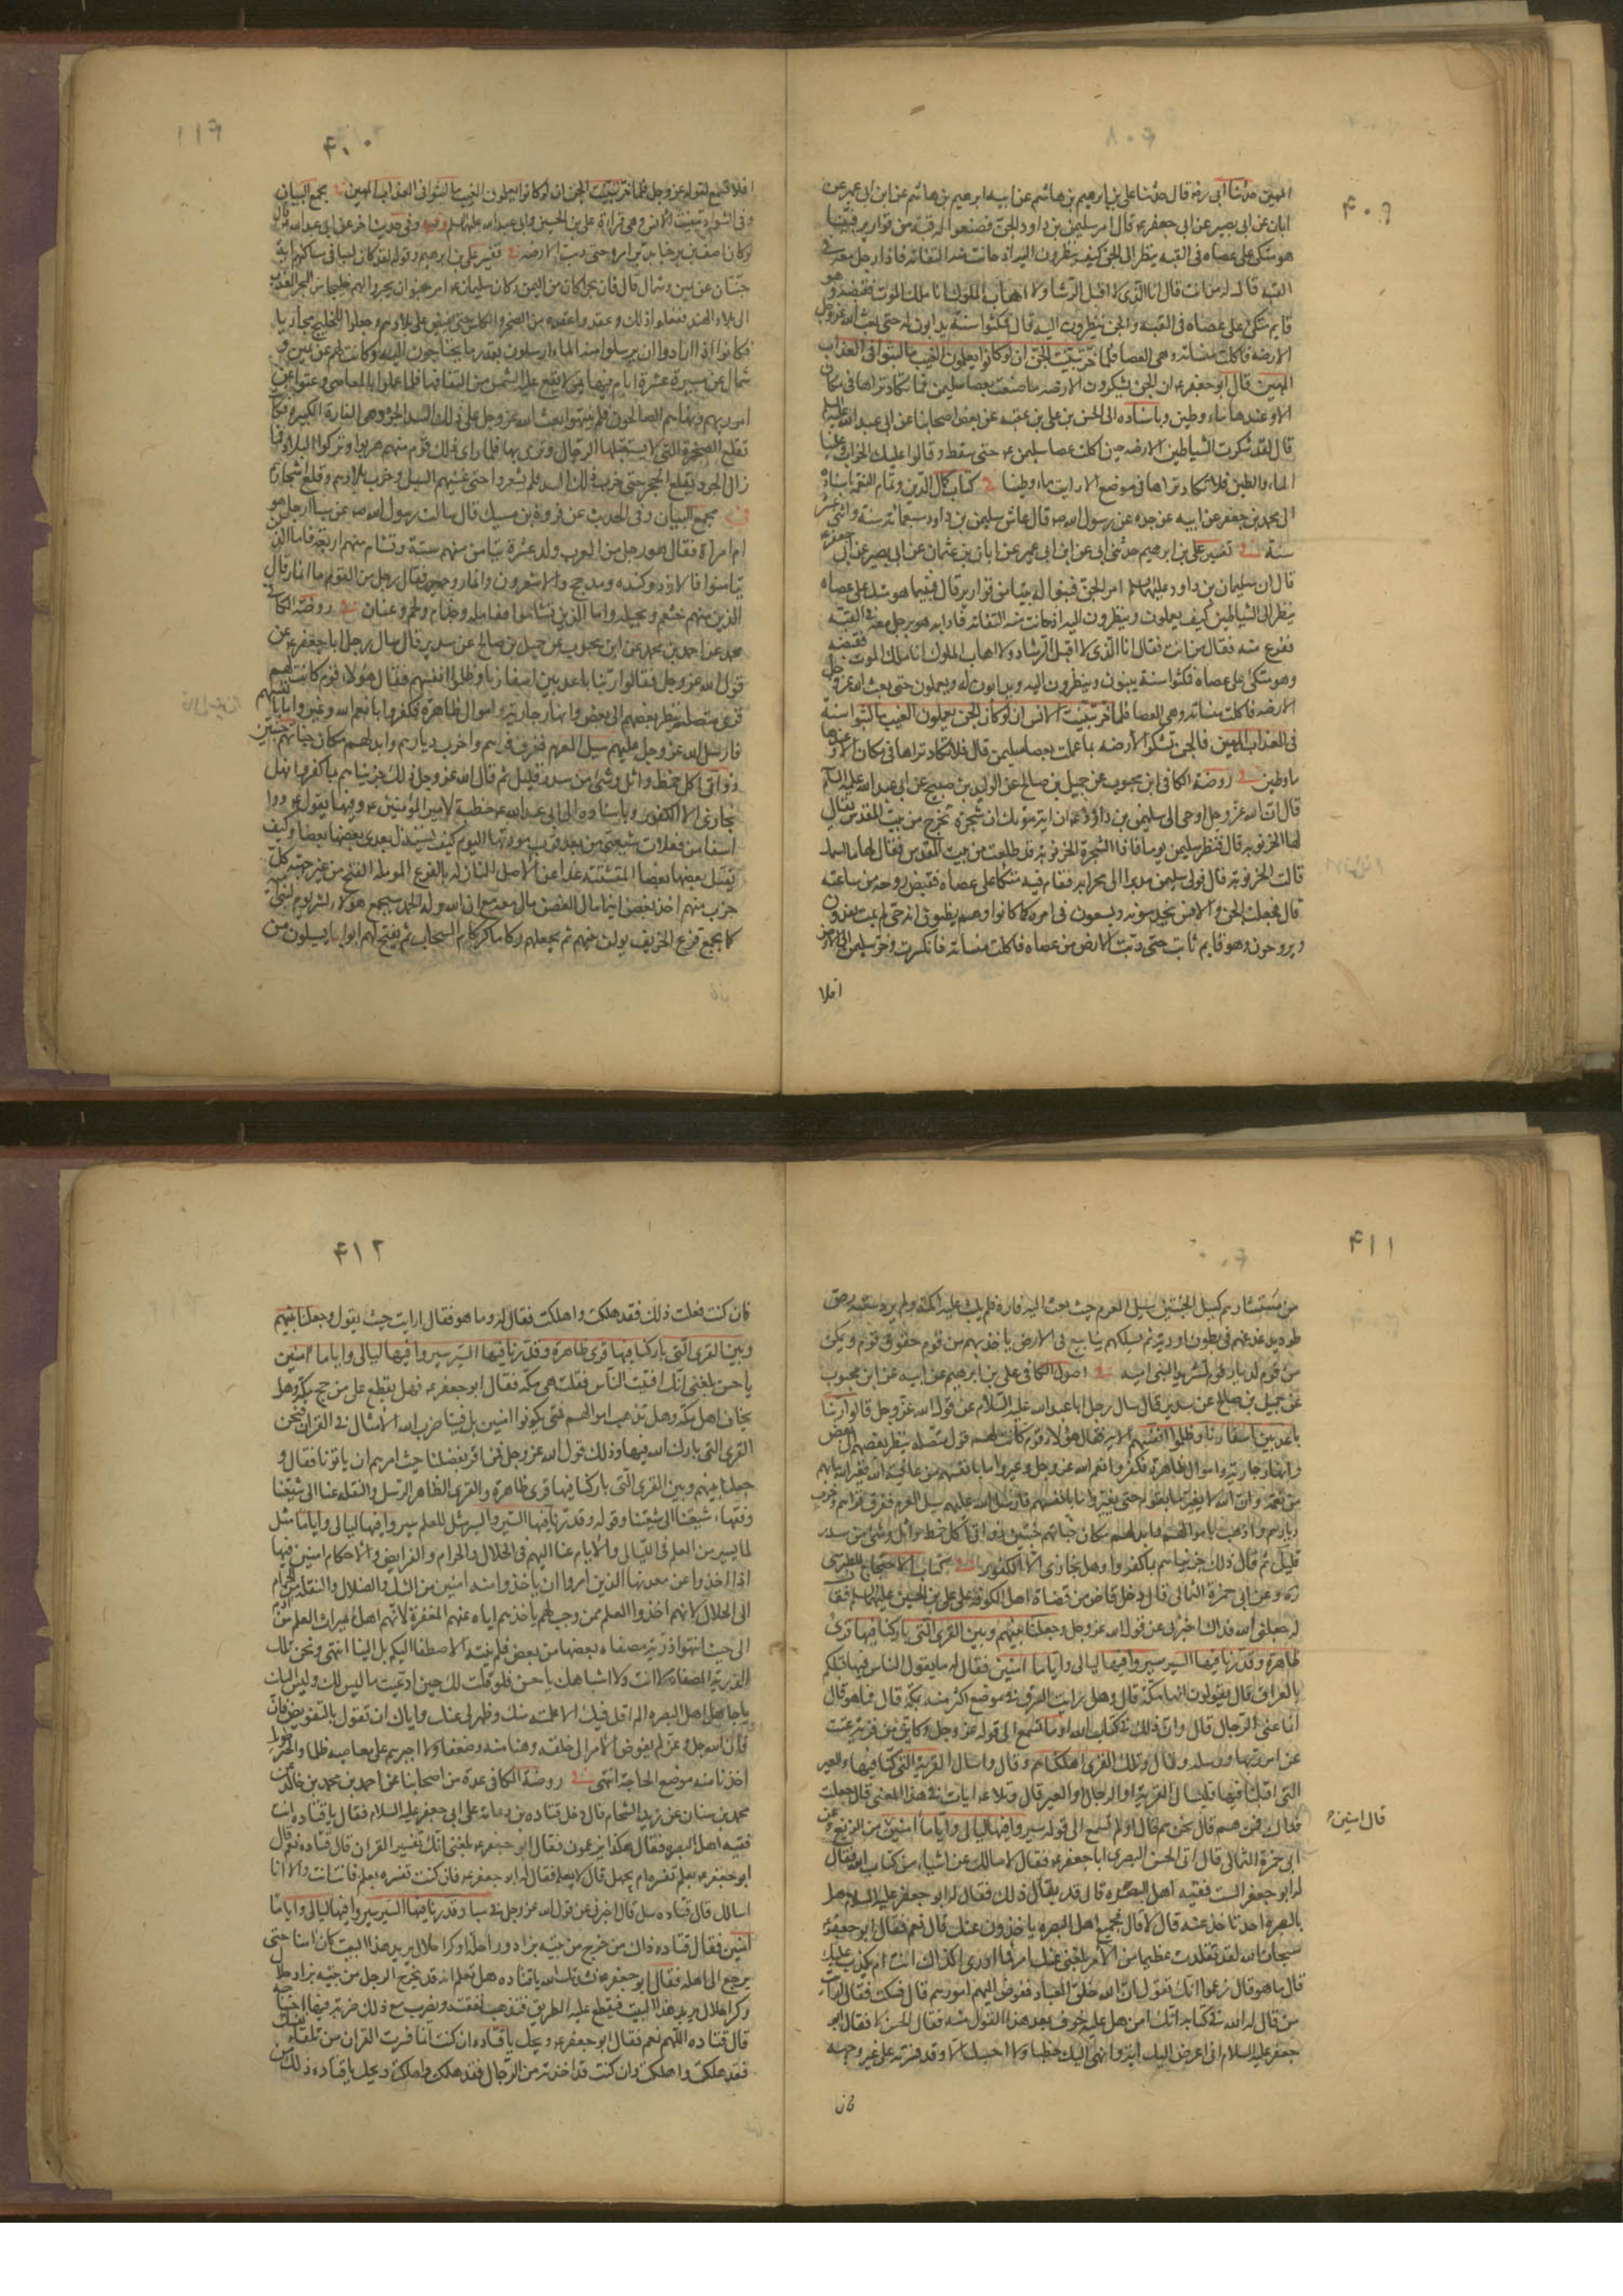 ۴۰۹
المهين حدثنا ابى ره قال حدثنا على بن ابرهيم بن هاشم عن ابيه ابرهيم بن هاشم عن ابن ابى عمير عن
ابان عن ابى بصير عن ابى جعفر ع قال امر سليمن بن داود الجن فصنعوا له قبة من قوارير فبينا
هو متكئ على عصاه فى القبة ينظر الى الجن كيف ينظرون اليه اذ حانت منه التفاتة فاذا رجل معه فى
القبة قال له من انت قال انا الذى لا اقبل الرشا ولا اهاب الملوك انا ملك الموت فقبضه وهو
قايم متكئ على عصاه فى القبة والجن ينظرون اليه قال فمكثوا سنة يدابون له حتى بعث الله عز وجل
الارضة فاكلت منساته وهى العصا فلما خر تبينت الجن ان لو كانوا يعلمون الغيب ما لبثوا فى العذاب
المهين قال ابو جعفر ع ان الجن يشكرون الارضة ما صنعت بعصا سليمن فما تكاد تراها فى مكان
الا وعندها ماء وطين وباسناده الى الحسن بن على بن عقبة عن بعض اصحابنا عن ابى عبد الله عليه السلم
قال لقد شكرت الشياطين الارضة حين اكلت عصا سليمن ع حتى سقط وقالوا عليك الخراب وعلينا
الماء والطين فلا تكاد تراها فى موضع الا رايت ماء وطينا فى كتاب كمال الدين وتمام النعمة باسناده
الى محمد بن جعفر عن ابيه عن جده عن رسول الله ص قال عاش سليمن بن داود سبعمائة سنة واثنى عشر
سنة فى تفسير على بن ابرهيم حدثنى ابى عن ابن ابى عمير عن ابان بن عثمان عن ابى بصير عن ابى جعفر ع
قال ان سليمان بن داود عليهما السلم امر الجن فبنوا له بيتا من قوارير قال فبينما هو متكئ على عصاه
ينظر الى الشياطين كيف يعملون وينظرون اليه اذ حانت منه التفاتة فاذا هو برجل معه فى القبة
ففزع منه فقال من انت فقال انا الذى لا اقبل الرشا ولا اهاب الملوك انا ملك الموت فقبضه
وهو متكئ على عصاه فمكثوا سنة يبنون وينظرون اليه ويدانون له ويعملون حتى بعث الله عز وجل
الارضة فاكلت منساته وهى العصا فلما خر تبينت الانس ان لو كان الجن يعلمون الغيب ما لبثوا سنة
فى العذاب المهين فالجن تشكر الارضة بما عملت بعصا سليمن قال فلا تكاد تراها فى مكان الا وعندها
ماء وطين فى روضة الكافى ابن محبوب عن جميل بن صالح عن الوليد بن صبيح عن ابى عبد الله عليه السلم
قال ان الله عز وجل اوحى الى سليمن بن داود ع ان اية موتك ان شجرة تخرج من بيت المقدس يقال
لها الخرنوبة قال فنظر سليمن يوما فاذا الشجرة الخرنوبة قد طلعت من بيت المقدس فقال لها ما اسمك
قالت الخرنوبة قال فولى سليمن مدبرا الى محرابه فقام فيه متكئا على عصاه فقبض روحه من ساعته
قال فجعلت الجن والانس يخدمونه ويسعون فى امره كما كانوا وهم يظنون انه حى لم يمت يغدون
ويروحون وهو قايم ثابت حتى دبت الارض من عصاه فاكلت منساته فانكسرت وخر سليمن الى الارض
افلا
۴۱۰
افلا تسمع لقوله عز وجل فلما خر تبينت الجن ان لو كانوا يعلمون الغيب ما لبثوا فى العذاب المهين فى مجمع البيان
وفى الشواذ تبينت الانس وهى قراءة على بن الحسين وابى عبد الله عليهما السلم وفيه وفى حديث اخر عن ابى عبد الله قال
جنتان عن يمين وشمال قال فان بحرا كان من اليمن وكان سليمان ع امر جنوده ان يجروا لهم خليجا من البحر العذب
الى بلاد الهند ففعلوا ذلك وعقدوا عقدة من الصخر والكلس حتى يفيض على بلادهم وجعلوا للخليج مجاريا
فكانوا اذا ارادوا ان يرسلوا منه الماء ارسلوه بقدر ما يحتاجون اليه وكانت لهم جنتان عن يمين و
شمال عن مسيرة عشرة ايام فيها يمر لا يقع عليه الشمس من التفافها فلما عملوا بالمعاصى وعتوا عن
امر ربهم ونهاهم الصالحون فلم ينتهوا بعث الله عز وجل على ذلك السد الجرذ وهى الفارة الكبيرة فكان
تقلع الصخرة التى لا يستقلها الرجال وترمى بها فلما راى ذلك قوم منهم هربوا وتركوا البلاد فما
زال الجرذ تقلع الحجر حتى خرب ذلك السد فلم يشعروا حتى غشيهم السيل وخرب بلادهم وقلع اشجارهم
فى مجمع البيان وفى الحديث عن فروة بن مسيك قال سالت رسول الله ص عن سبا ارجل هو
ام امراة فقال هو رجل من العرب ولد عشرة تيامن منهم ستة وتشام منهم اربعة فاما الذين
تيامنوا فالازد وكندة ومذحج والاشعرون وانمار وحمير فقال رجل من القوم ما انمار قال
الذين منهم خثعم وبجيلة واما الذين تشاموا فعاملة وجذام ولخم وغسان فى روضة الكافى
محمد عن احمد بن محمد عن ابن محبوب عن جميل بن صالح عن سدير قال سال رجل ابا جعفر ع عن
قول الله عز وجل فقالوا ربنا باعد بين اسفارنا وظلموا انفسهم فقال هؤلاء قوم كانت لهم
قرى متصلة ينظر بعضهم الى بعض وانهار جارية واموال ظاهرة فكفروا بانعم الله وغيروا ما بانفسهم
فارسل الله عز وجل عليهم سيل العرم فغرق قراهم واخرب ديارهم وابدلهم مكان جناتهم جنتين
ذواتى اكل خمط واثل وشئ من سدر قليل ثم قال الله عز وجل ذلك جزيناهم بما كفروا وهل
نجازى الا الكفور وباسناده الى ابى عبد الله ع خطبة لامير المؤمنين ع وفيها يقول ع ووا
اسفا من فعلات شيعتى من بعد قرب مودتها اليوم كيف يستذل بعدى بعضها بعضا وكيف
تقتل بعضها بعضا المتشتتة غدا عن الاصل النازلة بالفرع الموملة الفتح من غير جهته كل
حزب منهم اخذ بغصن اينما مال الغصن مال معه مع ان الله وله الحمد سيجمع هؤلاء لشر يوم لبنى امية
كما يجمع قزع الخريف يولف بينهم ثم يجعلهم ركاما كركام السحاب ثم يفتح لهم ابوابا يسيلون من
۴۱۱
من مستثارهم كسيل الجنتين سيل العرم حيث بعث اليه فارة فلم يثبت عليه اكمة ولم يرد سننه رص
طود يذعذعهم فى بطون اودية ثم يسلكهم ينابيع فى الارض ياخذ بهم من قوم حقوق قوم ويمكن
من قوم لديار قوم تشريدا لبنى امية فى اصول الكافى على بن ابرهيم عن ابيه عن ابن محبوب
عن جميل بن صالح عن سدير قال سال رجل ابا عبد الله عليه السلام عن قول الله عز وجل قالوا ربنا
باعد بين اسفارنا وظلموا انفسهم الاية فقال هؤلاء قوم كانت لهم قرى متصلة ينظر بعضهم الى بعض
وانهار جارية واموال ظاهرة فكفروا نعم الله عز وجل وغيروا ما بانفسهم من عافية الله فغير الله ما بهم
من نعمة وان الله لا يغير ما بقوم حتى يغيروا ما بانفسهم فارسل الله عليهم سيل العرم فغرق قراهم وخرب
ديارهم واذهب باموالهم وابدلهم مكان جناتهم جنتين ذواتى اكل خمط واثل وشئ من سدر
قليل ثم قال ذلك جزيناهم بما كفروا وهل نجازى الا الكفور فى كتاب الاحتجاج للطبرسى
ره وعن ابى حمزة الثمالى قال دخل قاض من قضاة اهل الكوفة على على بن الحسين عليهما السلم فقال
له جعلنى الله فداك اخبرنى عن قول الله عز وجل وجعلنا بينهم وبين القرى التى باركنا فيها قرى
ظاهرة وقدرنا فيها السير سيروا فيها ليالى واياما امنين فقال له ما يقول الناس فيها قبلكم
بالعراق قال يقولون انها مكة قال وهل رايت السرق فى موضع اكثر منه بمكة قال فما هو قال
انما عنى الرجال قال واين ذلك فى كتاب الله اوما تسمع الى قوله عز وجل وكاين من قرية عتت
عن امر ربها ورسله وقال وتلك القرى اهلكناهم وقال واسال القرية التى كنا فيها والعير
التى اقبلنا فيها فليسال القرية او الرجال او العير قال وتلا عه ايات فى هذا المعنى قال جعلت
فداك فمن هم قال نحن هم قال اولم تسمع الى قوله سيروا فيها ليالى واياما امنين من الزيغ وعن
قال امنين
ابى حمزة الثمالى قال اتى الحسن البصرى ابا جعفر ع فقال لاسالك عن اشياء من كتاب الله فقال
له ابو جعفر الست فقيه اهل البصرة قال قد يقال ذلك فقال له ابو جعفر عليه السلام هل
بالبصرة احد تاخذ عنه قال لا قال فجميع اهل البصرة ياخذون عنك قال نعم فقال ابو جعفر ع
سبحان الله لقد تقلدت عظيما من الامر بلغنى عنك امر فما ادرى اكذلك انت ام يكذب عليك
قال ما هو قال زعموا انك تقول ان الله خلق العباد ففوض اليهم امورهم قال فسكت فقال ارايت
من قال له الله فى كتابه انك امن هل عليه خوف بعد هذا القول منه فقال الحسن لا فقال ابو
جعفر عليه السلام انى اعرض اليك اية وانهى اليك خطبا ولا احسبك الا وقد فسرته على غير وجهه
فان
۴۱۲
فان كنت فعلت ذلك فقد هلكت واهلكت فقال له وما هو فقال ارايت حيث يقول وجعلنا بينهم
وبين القرى التى باركنا فيها قرى ظاهرة وقدرنا فيها السير سيروا فيها ليالى واياما امنين
يا حسن بلغنى انك افتيت الناس فقلت هى مكة فقال ابو جعفر ع فهل يقطع على من حج مكة وهل
يخاف اهل مكة وهل تذهب اموالهم فمتى يكونوا امنين بل فينا ضرب الله الامثال فى القران فنحن
القرى التى بارك الله فيها وذلك قول الله عز وجل فمن اقر بفضلنا حيث امرهم ان ياتونا فقال و
جعلنا بينهم وبين القرى التى باركنا فيها قرى ظاهرة والقرى الظاهرة الرسل والنقلة عنا الى شيعتنا
وفقهاء شيعتنا الى شيعتنا وقوله وقدرنا فيها السير والسير مثل للعلم سيروا فيها ليالى واياما مثل
لما يسير من العلم فى الليالى والايام عنا اليهم فى الحلال والحرام والفرايض والاحكام امنين فيها
اذا اخذوا عن معدنها الذين امروا ان ياخذوا منه امنين من الشك والضلال والنقلة من الحرام
الى الحلال لانهم اخذوا العلم ممن وجب لهم باخذهم اياه عنهم المغفرة لانهم اهل ميراث العلم من
الى حيث انتهوا ذرية مصفاة بعضها من بعض فلم ينته الاصطفا اليكم بل الينا انتهى ونحن تلك
الذرية المصفاة لا انت ولا اشباهك يا حسن فلو قلت لك حين ادعيت ما ليس لك وليس اليك
يا جاهل اهل البصرة لم اقل فيك الا ما علمته منك وظهر لى عنك واياك ان تقول بالتفويض فان
فان الله جل وعز لم يفوض الامر الى خلقه وهنا منه وضعفا ولا اجبرهم على معاصيه ظلما والخبر طويل
اخذنا منه موضع الحاجة انتهى فى روضة الكافى عدة من اصحابنا عن احمد بن محمد بن خالد عن
محمد بن سنان عن زيد الشحام قال دخل قتادة بن دعامة على ابى جعفر عليه السلام فقال يا قتادة انت
فقيه اهل البصرة فقال هكذا يزعمون فقال ابو جعفر ع بلغنى انك تفسير القران قال قتادة نعم قال
ابو جعفر ع بعلم تفسره ام بجهل قال لا بعلم فقال له ابو جعفر ع فان كنت تفسره بعلم فانت انت وانا
اسالك قال قتادة سل قال اخبرنى عن قول الله عز وجل فى سبا وقدرنا فيها السير سيروا فيها ليالى واياما
امنين فقال قتادة ذاك من خرج من بيته بزاد وراحلة وكرا حلال يريد هذا البيت كان امنا حتى
يرجع الى اهله فقال ابو جعفر ع نشدتك الله يا قتادة هل تعلم انه قد يخرج الرجل من بيته بزاد حلال
وكرا حلال يريد هذا البيت فيقطع عليه الطريق فتذهب نفقته ويضرب مع ذلك ضربة فيها اجتياحه
قال قتادة اللهم نعم فقال ابو جعفر ع ويحك يا قتادة ان كنت انما فسرت القران من تلقاء نفسك
فقد هلكت واهلكت وان كنت قد اخذته من الرجال فقد هلكت واهلكت ويحك يا قتادة ذلك من